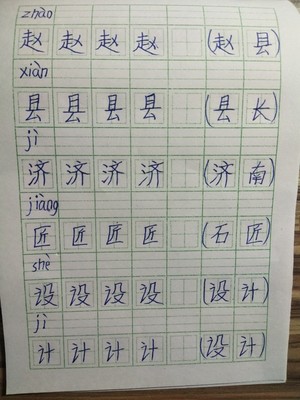 zhào
赵 赵 赵 赵 (赵 县)
xiàn
县 县 县 县 (县 长)
jì
济 济 济 济 (济 南)
jiàng
匠 匠 匠 匠 (石 匠)
shè
设 设 设 设 (设 计)
jì
计 计 计 计 (设 计)